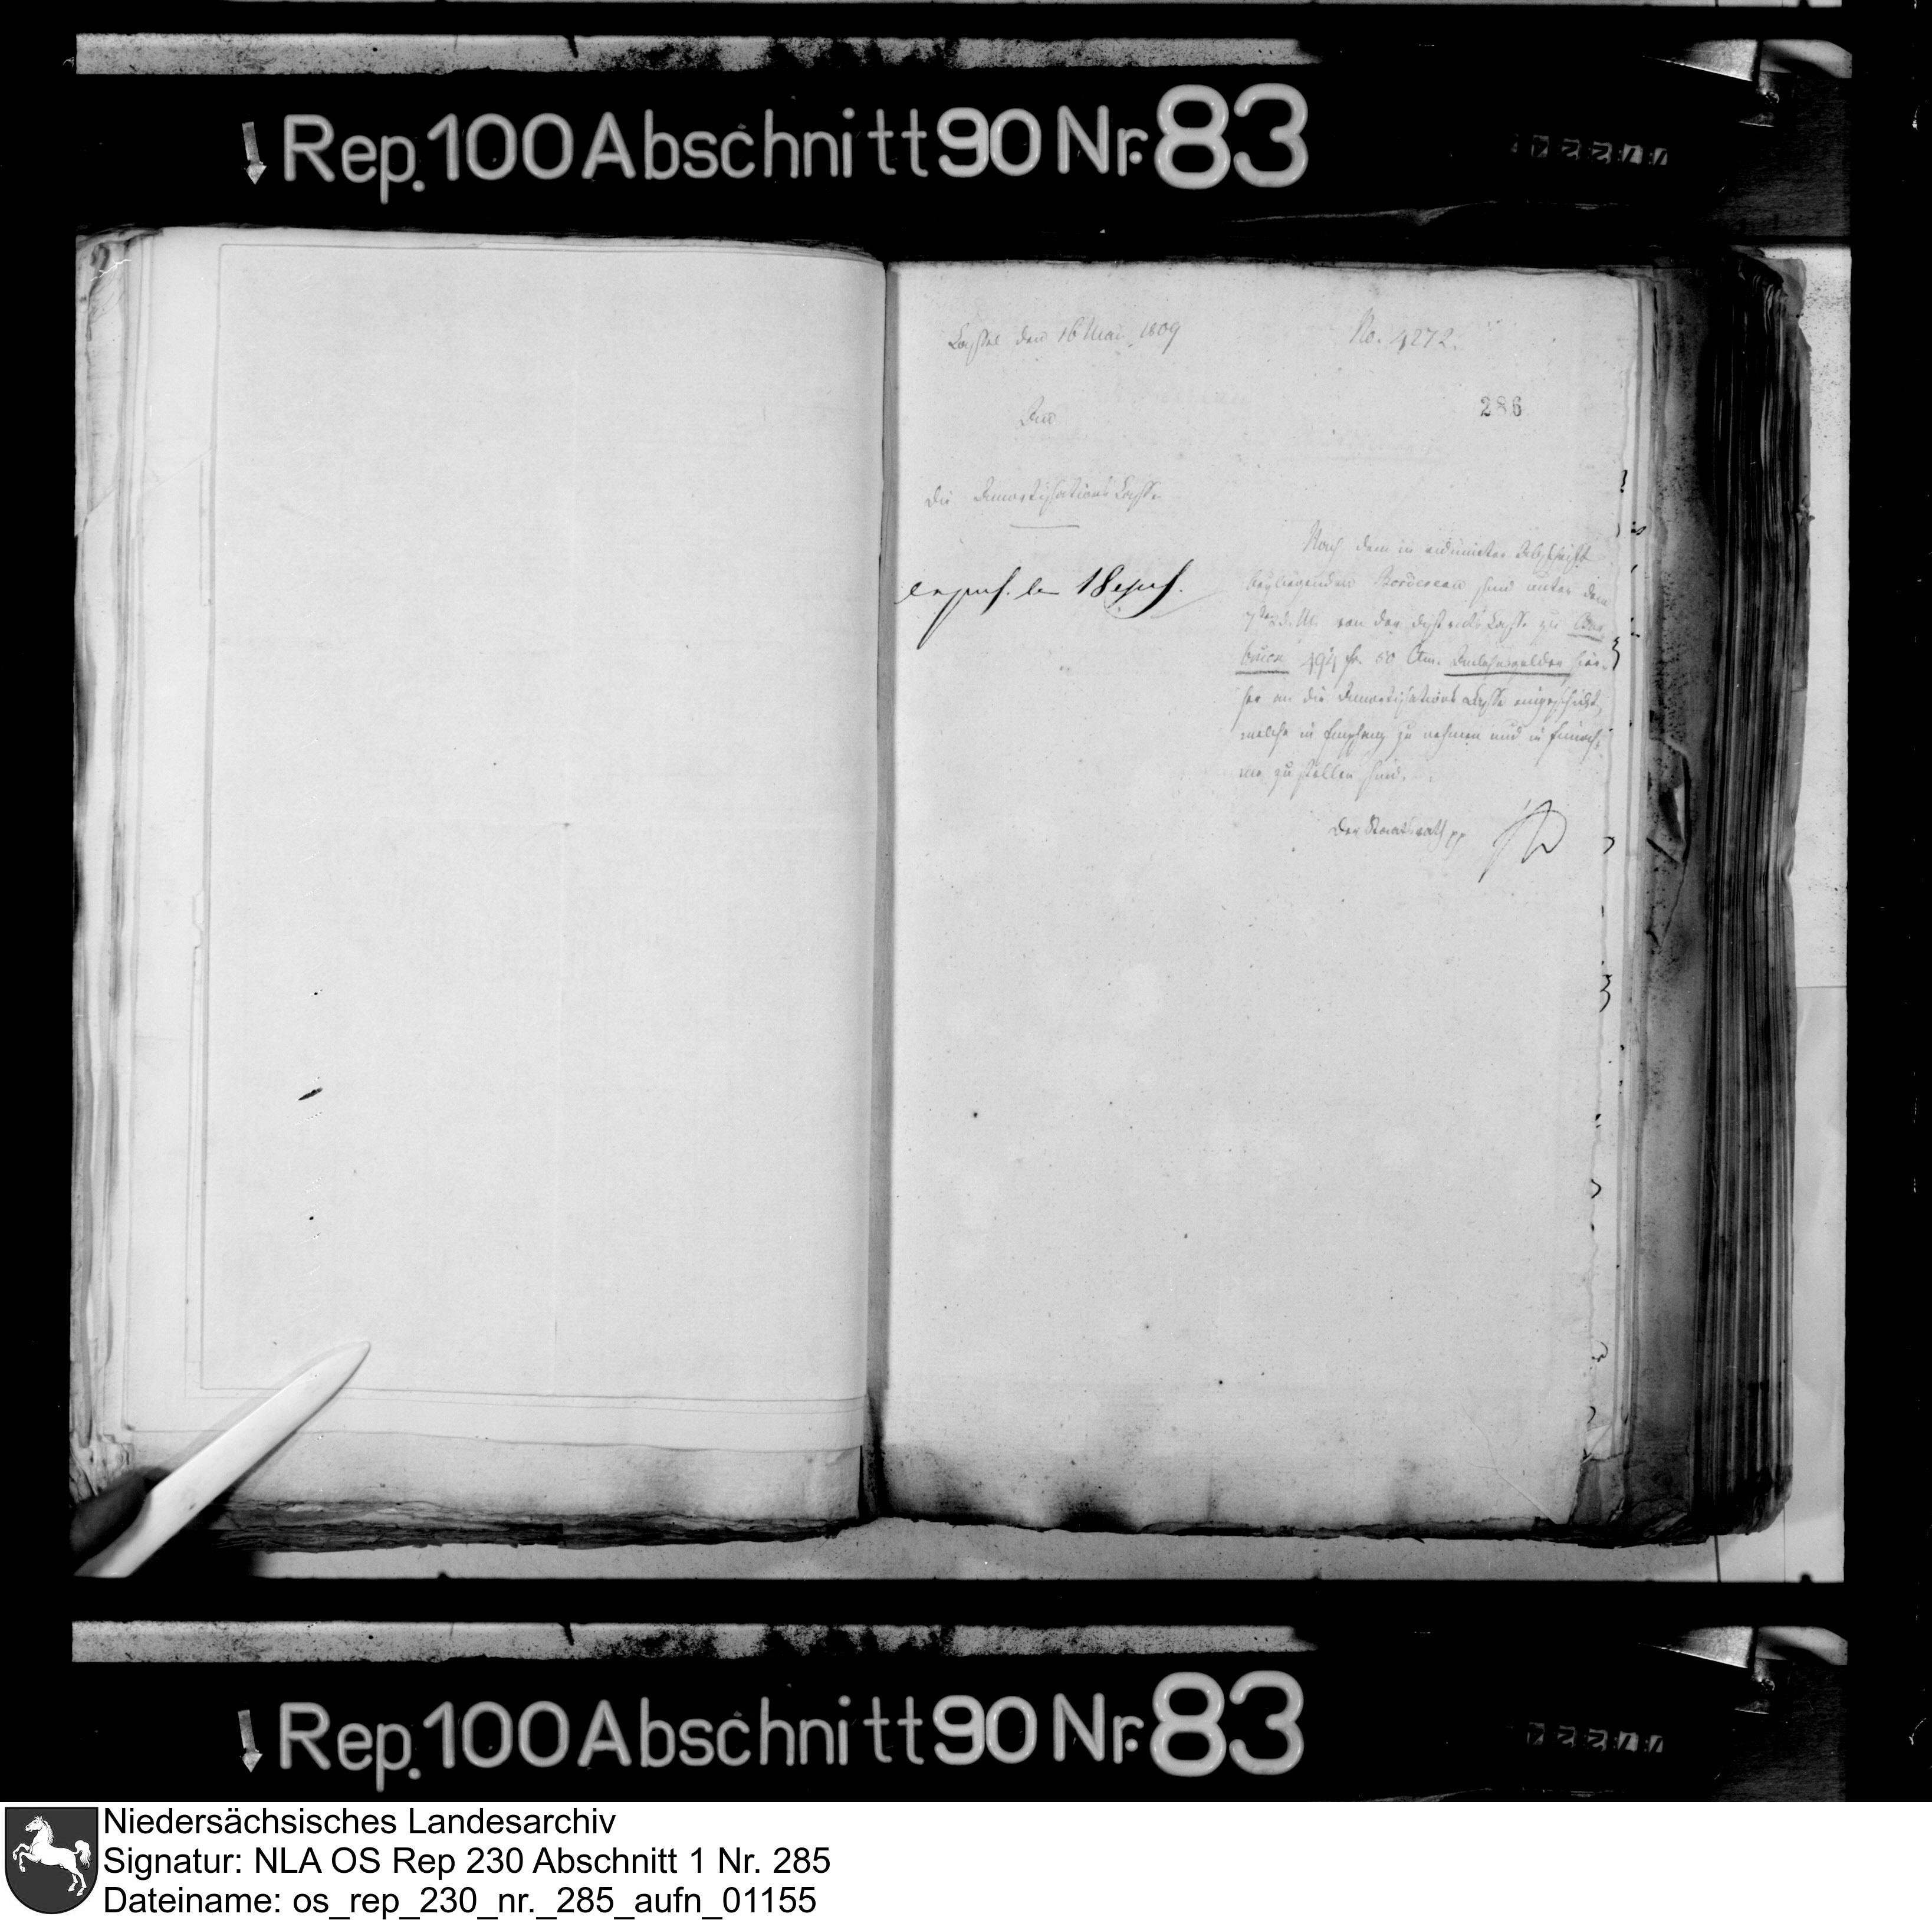 Rep. 100 Abschnitt 90 Nr. 83
Cassel den 16 Mai 1809
No. 4272.
286
An
die Amortisations Casse
Nach dem in vidimirter Abschrift
beyliegenden Bordereau sind unter dem
7ten d. M. von der Distrikts Casse zu Osna
brück 494 fr. 50 Ctm. hier-
her an die Amortisations Casse eingeschickt,
welche in Empfang zu nehmen und in Einnah-
me zu stellen sind.
Der Staatsrath pp
Rep. 100 Abschnitt 90 Nr. 83
Niedersächsisches Landesarchiv
Signatur: NLA OS Rep 230 Abschnitt 1 Nr. 285
Dateiname: os_rep_230_nr._285_aufn_01155